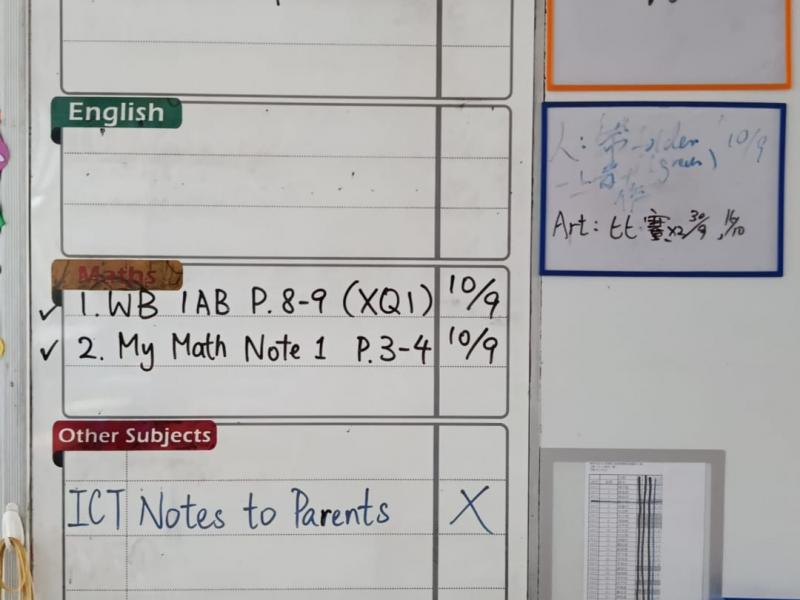 English
Maths
1. WB 1AB P. 8-9 (XQ1) 10/9
2. My Math Note 1 P.3-4 10/9
Other Subjects
ICT Notes to Parents X
人: 帶 10/9
Art: 比賽 x2 30/9, 11/10